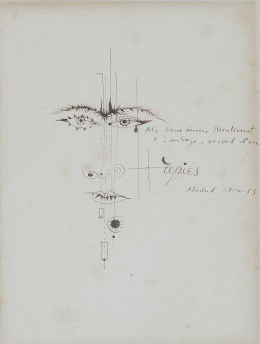 Als bons amics Montserrat
i Santiago, record d'en
Tàpies
Madrid